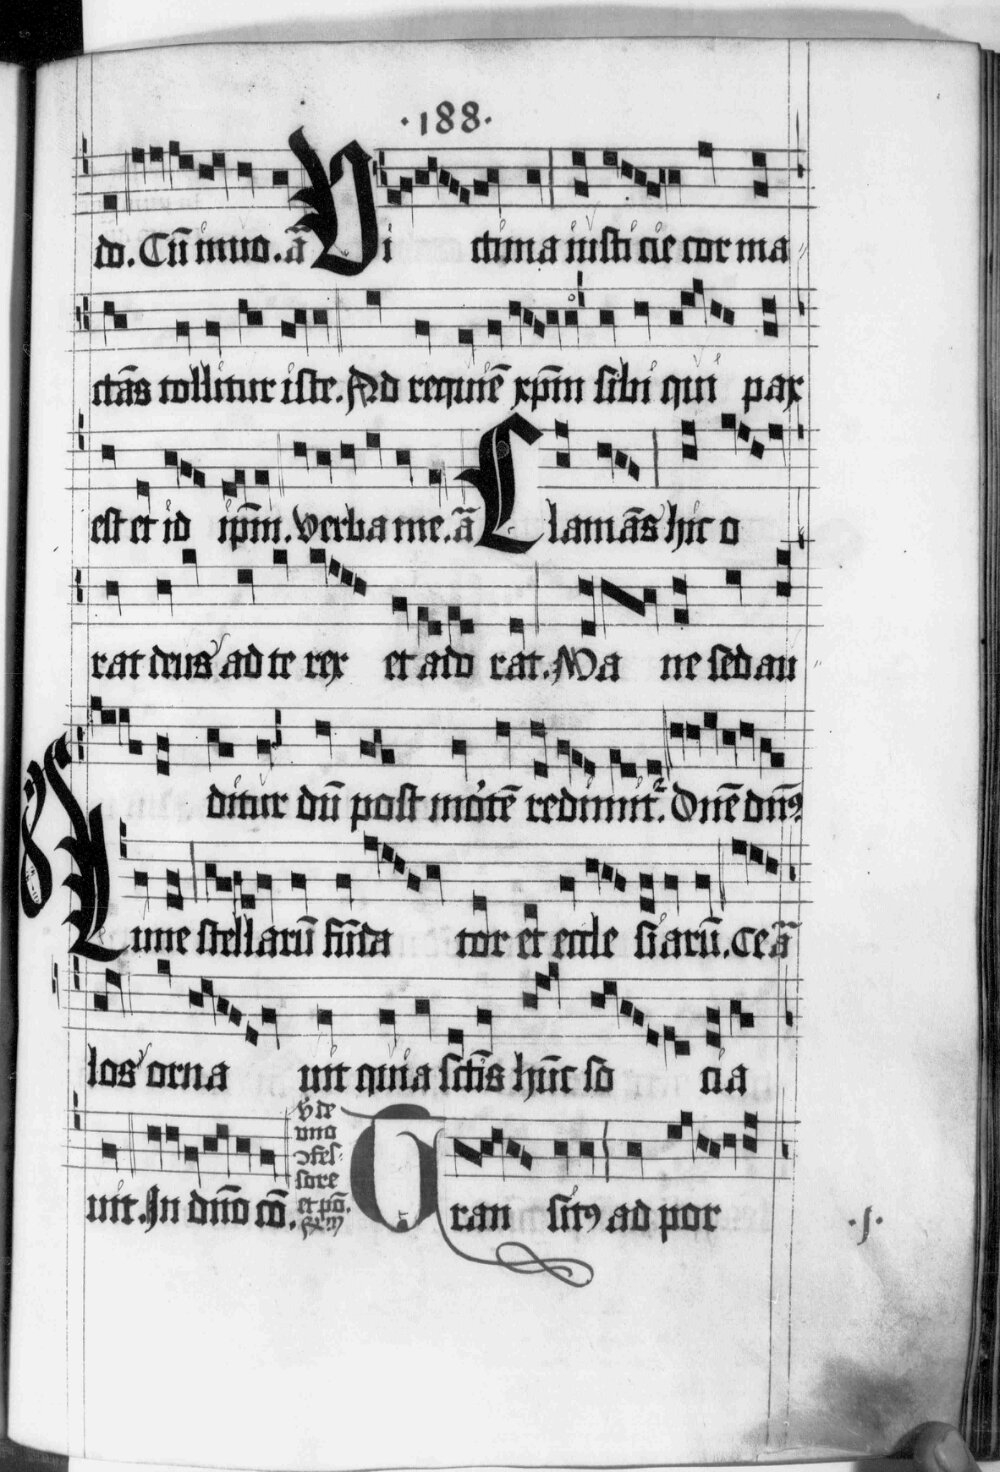 ·188·
do. Cū inuo. ā Vi ctima iusticie cor ma
ctās tollitur iste. Ad requiē xp̄m sibi qui pax
est et id ip̄m. Verba me. ā Clamās hic o
rat deus ad te rex et ado rat. Ma ne sed au
ditur dū post mortē redimit̄. Dn̄e dn̄s
Lune stellarū fūda tor et eccle siarū. Ceā
los orna uit quia sctīs hūc so cia
uit. In dn̄o cō. Tran sitꝰ ad por
v̄ de
uno
ɔfes-
sore
et pō.
·s·